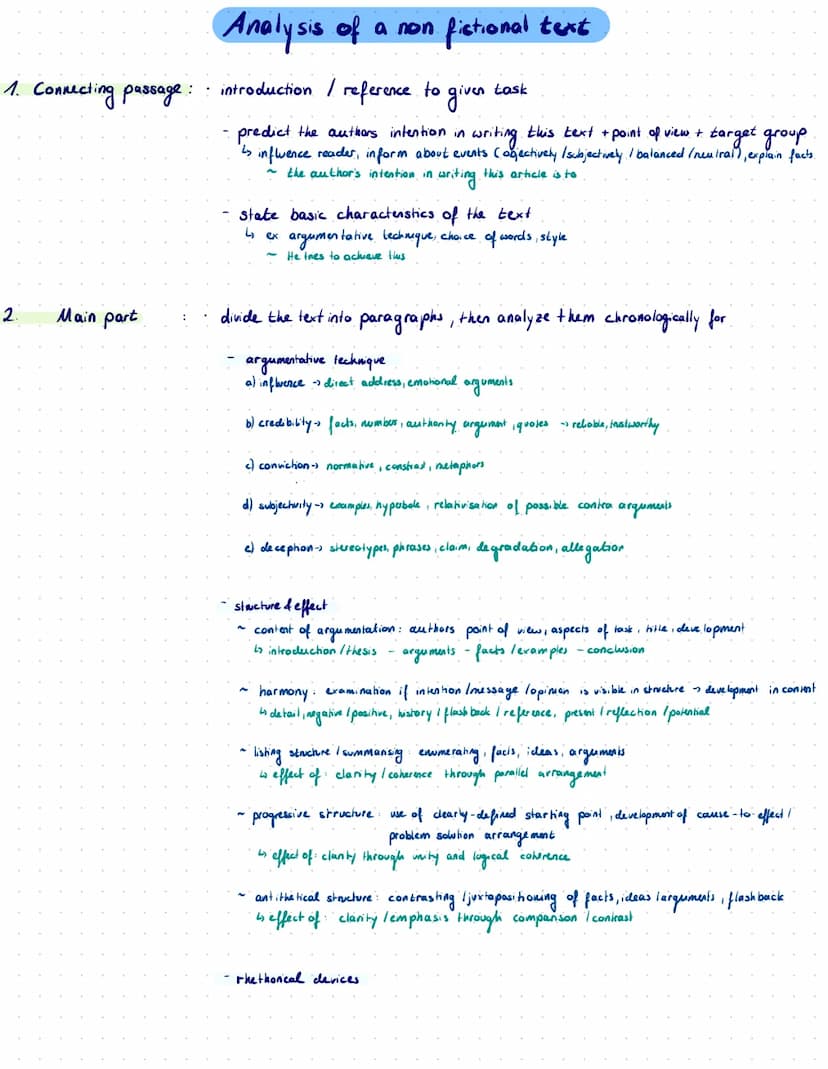 Analysis of a non fictional text
1. Connecting passage : · introduction / reference to given task
- predict the authors intention in writing this text + point of view + target group
↳ influence reader, inform about events (objectively / subjectively / balanced / neutral), explain facts
~ the author's intention in writing this article is to
- state basic characteristics of the text
↳ ex argumentative technique, choice of words, style
~ He tries to achieve this
2. Main part : · divide the text into paragraphs, then analyze them chronologically for
- argumentative technique
a) influence → direct address, emotional arguments
b) credibility → facts, number, authority argument, quotes → reliable, trustworthy
c) conviction → normative, contrast, metaphors
d) subjectivity → examples, hyperbole, relativisation of possible contra arguments
e) deception → stereotypes, phrases, claim, degradation, allegation
- structure & effect
~ content of argumentation: authors point of view, aspects of task, title, development
↳ introduction / thesis - arguments - facts / examples - conclusion
~ harmony: examination if intention / message / opinion is visible in structure → development in content
↳ detail, negative / positive, history / flashback / reference, present / reflection / potential
~ listing structure / summarising: enumerating, facts, ideas, arguments
↳ effect of: clarity / coherence through parallel arrangement
~ progressive structure: use of clearly-defined starting point, development of cause-to-effect /
problem solution arrangement
↳ effect of: clarity through unity and logical coherence
~ antithetical structure: contrasting / juxtapositioning of facts, ideas / arguments, flashback
↳ effect of: clarity / emphasis through comparison / contrast
- rhethorical devices